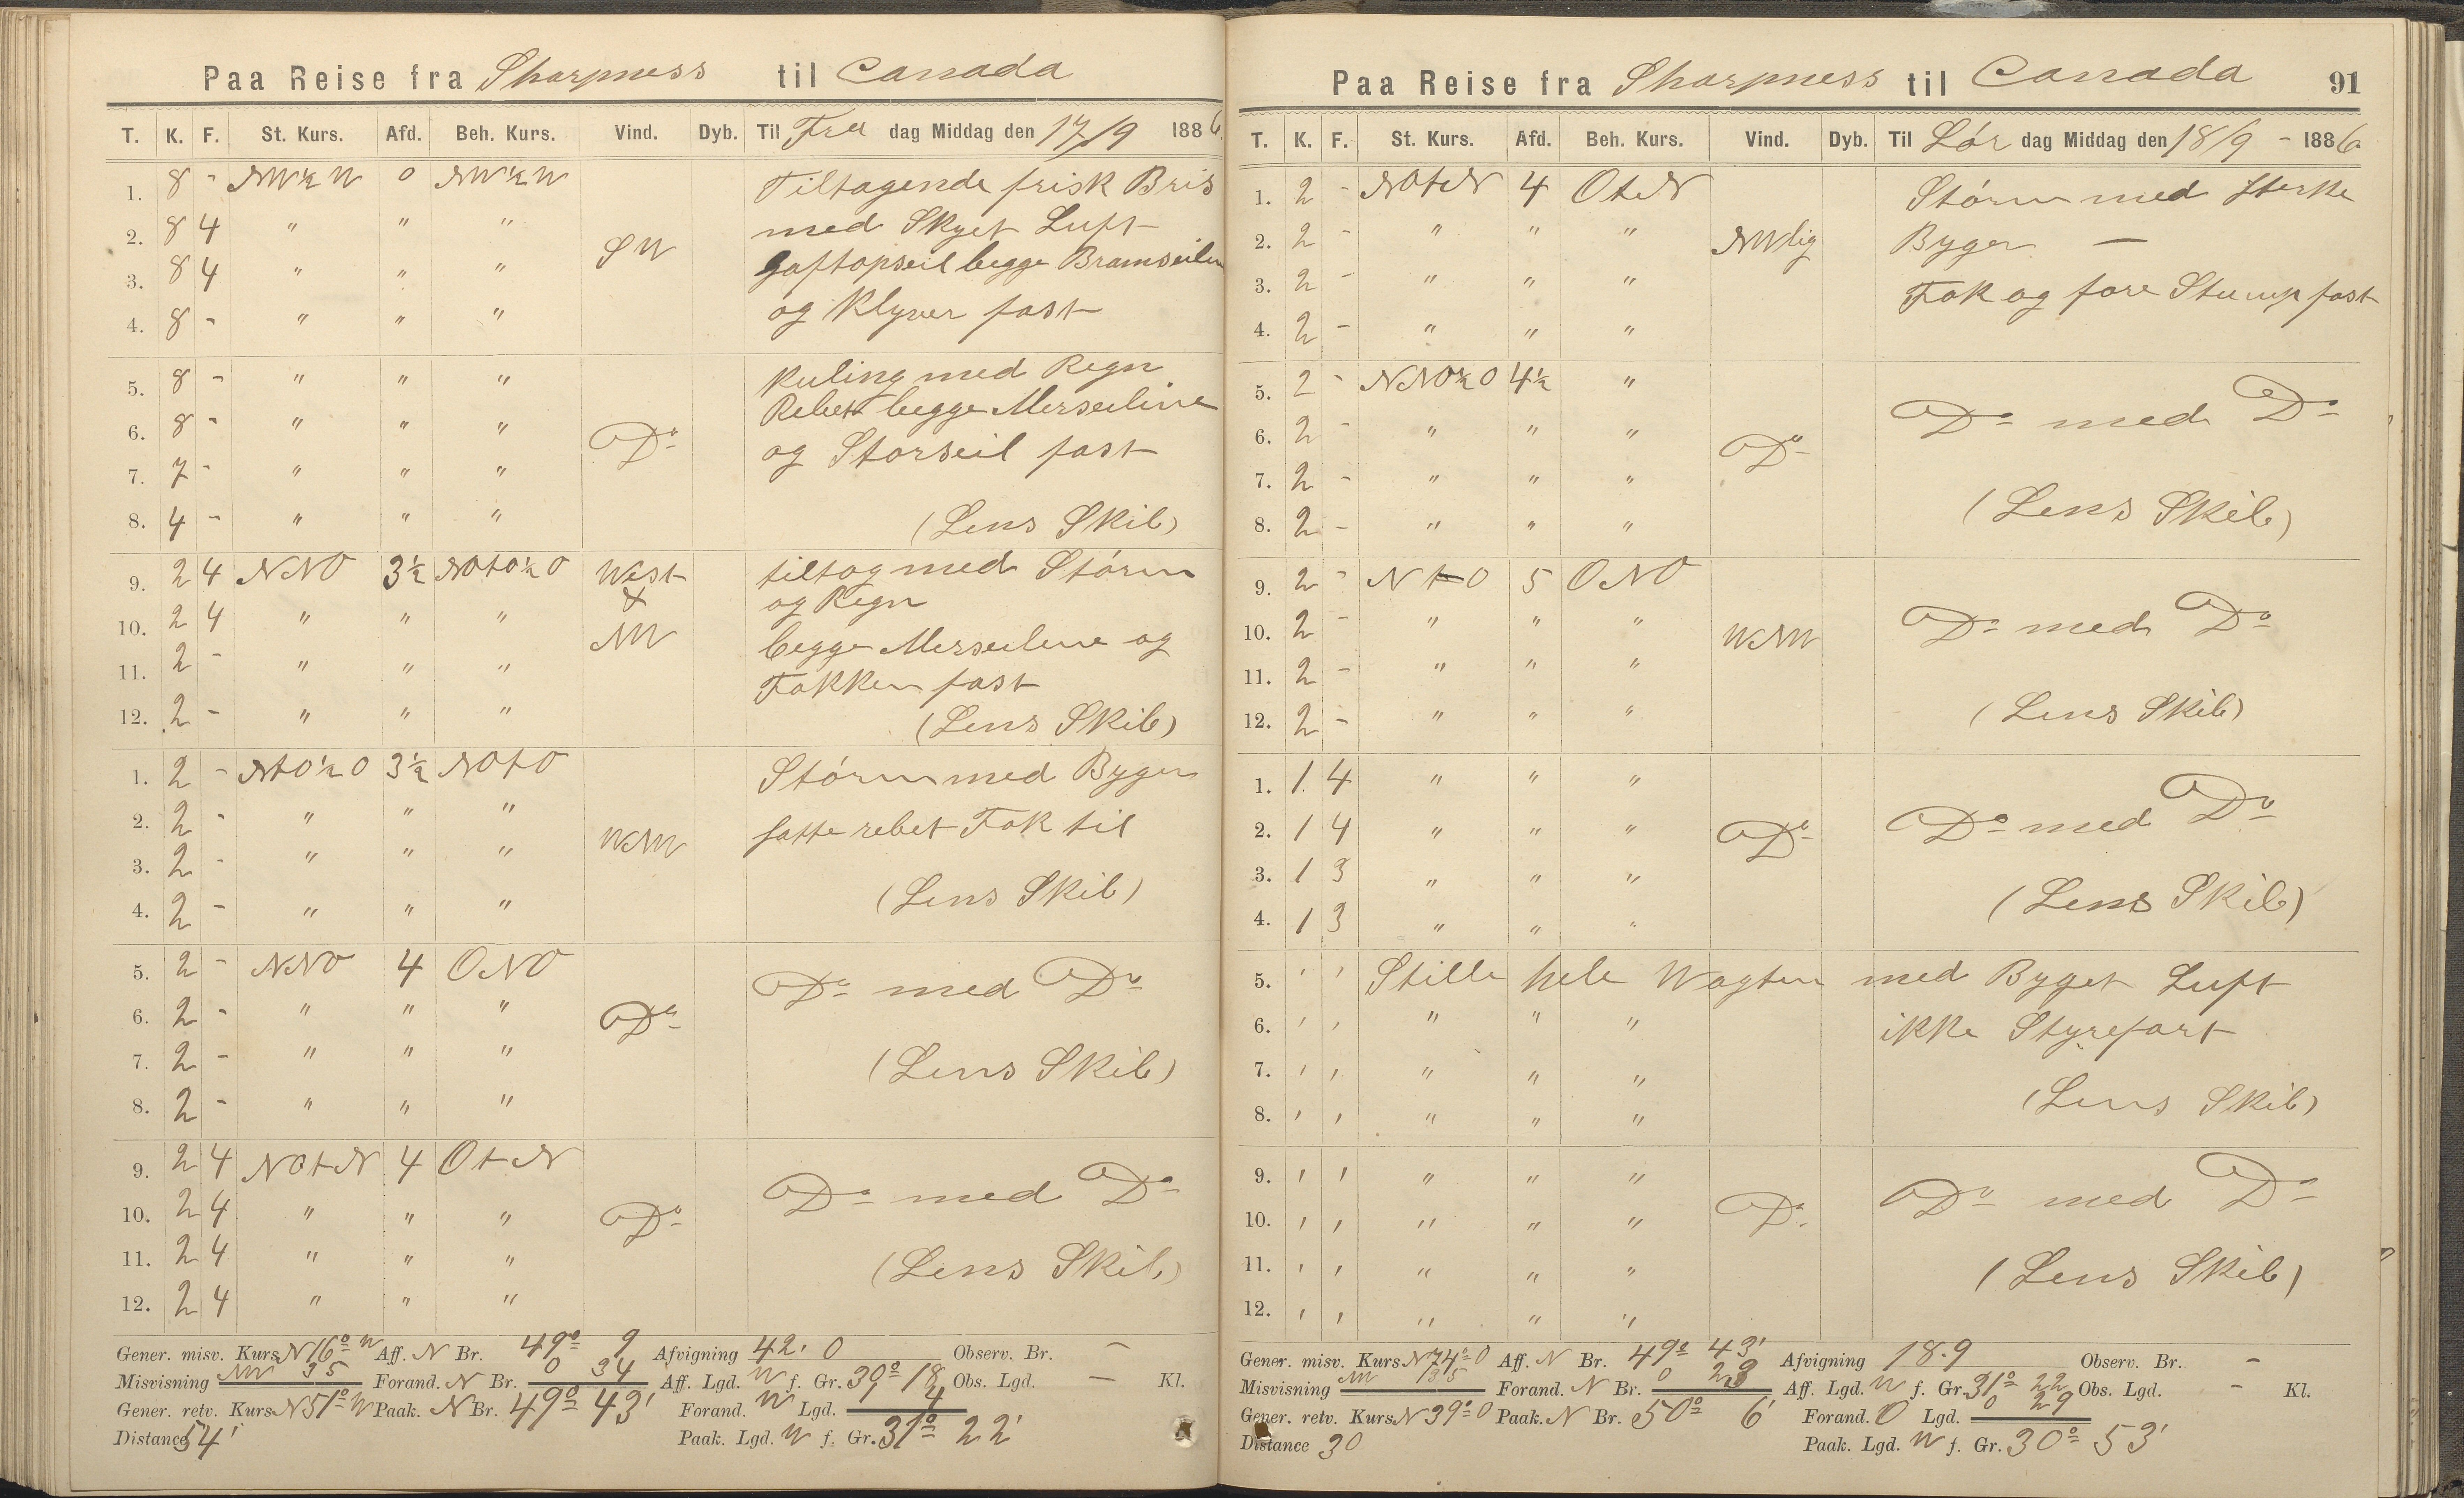 Paa Reise fra Sharpness til Canada
T. K. F. St. Kurs. Afd. Beh. Kurs. Vind. Dyb. Til Fre dag Middag den 17/9 1886.
1. 8 - NW½W 0 NW½W Tiltagende frisk Bris
2. 8 4 " " " SW med Skyet Luft
3. 8 4 " " " Gaftopseil begge Bramseilene
4. 8 - " " " og Klyver fast
5. 8 - " " " Kuling med Regn
6. 8 - " " " Do Rebett begge Merseilene
7. 7 - " " " og Storseil fast
8. 4 - " " " (Lens Skib)
9. 2 4 NNO 3½ NOtO½O West tiltog med Störm
10. 2 4 " " " & og Regn
11. 2 - " " " NW begge Merseilene og
Fokken fast
12. 2 - " " " (Lens Skib)
1. 2 - NtO½O 3½ NOtO Störm med Byger
2. 2 - " " " WNW satte rebet Fok til
3. 2 - " " "
4. 2 - " " " (Lens Skib)
5. 2 - NNO 4 ONO Do med Do
6. 2 - " " " Do
7. 2 - " " " (Lens Skib)
8. 2 - " " "
9. 2 4 NOtN 4 OtN Do med Do
10. 2 4 " " " Do
11. 2 4 " " " (Lens Skib)
12. 2 4 " " "
Gener. misv. Kurs N 16° W Aff. N Br. 49° 9 Afvigning 42.0 Observ. Br. —
Misvisning NW 35 Forand. N Br. 0 34 Aff. Lgd. W f. Gr. 30° 18 Obs. Lgd. — Kl.
Gener. retv. Kurs N 51° W Paak. N Br. 49° 43' Forand. W Lgd. 1 4
Distance 54' Paak. Lgd. W f. Gr. 31° 22'
Paa Reise fra Sharpness til Canada 91
T. K. F. St. Kurs. Afd. Beh. Kurs. Vind. Dyb. Til Lör dag Middag den 18/9 - 1886
1. 2 - NOtN 4 OtN Störm med sterke
2. 2 - " " " NWlig Byger —
3. 2 - " " " Fok og fore Stump fast
4. 2 - " " "
5. 2 - NNO½O 4½ " Do med Do
6. 2 - " " " Do
7. 2 - " " " (Lens Skib)
8. 2 - " " "
9. 2 - NtO 5 ONO Do med Do
10. 2 - " " " WNW
11. 2 - " " " (Lens Skib)
12. 2 - " " "
1. 1 4 " " " Do med Do
2. 1 4 " " " Do
3. 1 3 " " " (Lens Skib)
4. 1 3 " " "
5. ' ' Stille hele Wagten med Byget Luft
6. ' ' " " " ikke Styrefart
7. ' ' " " " (Lens Skib)
8. ' ' " " "
9. ' ' " " " Do med Do
10. ' ' " " " Do
11. ' ' " " " (Lens Skib)
12. ' ' " " "
Gener. misv. Kurs N 74° O Aff. N Br. 49° 43' Afvigning 18.9 Observ. Br. -
Misvisning NW 35 Forand. N Br. 0 23 Aff. Lgd. W f. Gr. 31° 22 Obs. Lgd. - Kl.
Gener. retv. Kurs N 39° O Paak. N Br. 50° 6' Forand. O Lgd. 0 29
Distance 30 Paak. Lgd. W f. Gr. 30° 53'